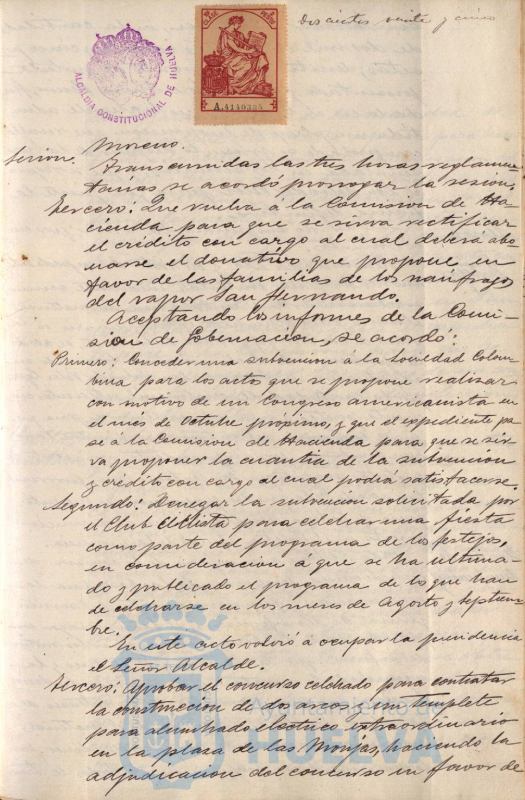 Doscientos veinte y cinco
ALCALDIA CONSTITUCIONAL DE HUELVA
A.4140325
Moreno.
Transcurridas las tres horas reglamen-
tarias se acordó prorrogar la sesion.
Tercero: Que vuelva á la Comision de Ha-
cienda para que se sirva rectificar
el crédito con cargo al cual deberá abo-
narse el donativo que propone en
favor de las familias de los naúfragos
del vapor San Fernando.
Aceptando los informes de la Comi-
sion de Gobernacion, se acordó:
Primero: Conceder una subvencion á la Sociedad Colom-
bina para los actos que se propone realizar
con motivo de un Congreso americanista en
el mes de Octubre próximo, y que el expediente pa-
se á la Comision de Hacienda para que se sir-
va proponer la cuantia de la subvencion
y crédito con cargo al cual podrá satisfacerse.
Segundo: Denegar la subvencion solicitada por
el Club Ciclista para celebrar una fiesta
como parte del programa de los festejos,
en consideracion á que se ha ultima-
do y publicado el programa de los que han
de celebrarse en los meses de Agosto y Septiem-
bre.
En este acto volvió á ocupar la presidencia
el Señor Alcalde.
Tercero: Aprobar el concurso celebrado para contratar
la construccion de dos arcos y un templete
para alumbrado electrico extraordinario
en la plaza de las Monjas, haciendo la
adjudicacion del concurso en favor de
HUELVA